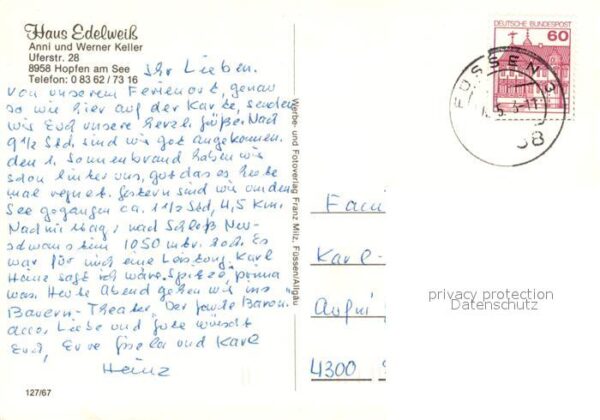 Haus Edelweiß
Anni und Werner Keller
Uferstr. 28
8958 Hopfen am See
Telefon: 0 83 62 / 73 16
Ihr Lieben.
Von unserem Ferienort, genau
so wie hier auf der Karte, senden
wir Euch unsere herzl. Grüße. Nach
9 1/2 Std. sind wir gut angekommen.
den 1. Sonnenbrand haben wir
schon hinter uns, gut das es heute
mal regnet. Gestern sind wir um den
See gegangen ca. 1 1/2 Std, 4,5 Km.
Nachmittag, nach Schloß Neu-
schwanstein 1050 mtr. hoch. Es
war für mich eine Leistung. Karl
Heinz sagt ich wäre Spitze, prima
was. Heute Abend gehen wir ins
Bauern-Theater, Der Baron.
alles Liebe und Gute wünscht
Euch, Eure Gisela und Karl
Heinz
127/67
Werbe- und Fotoverlag Franz Milz, Füssen/Allgäu
DEUTSCHE BUNDESPOST
60
FÜSSEN 3
Fami
Karl-
4300
privacy protection
Datenschutz